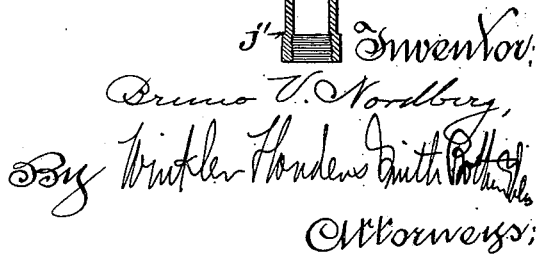 j" Inventor:
Bruno V. Nordberg,
By Winkler Flanders Smith Bottum
Attorneys: